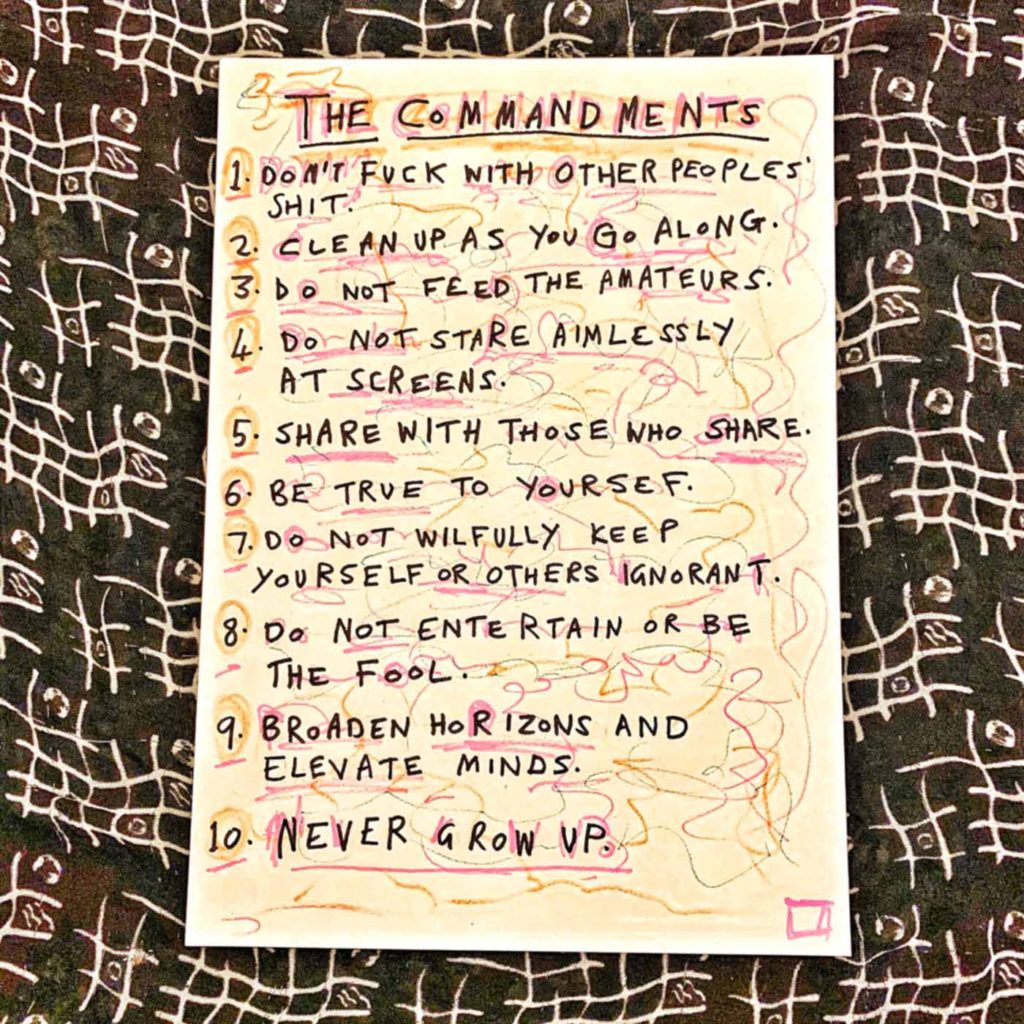 THE COMMANDMENTS
1. DON'T FUCK WITH OTHER PEOPLES'
SHIT.
2. CLEAN UP AS YOU GO ALONG.
3. DO NOT FEED THE AMATEURS.
4. DO NOT STARE AIMLESSLY
AT SCREENS.
5. SHARE WITH THOSE WHO SHARE.
6. BE TRUE TO YOURSEF.
7. DO NOT WILFULLY KEEP
YOURSELF OR OTHERS IGNORANT.
8. DO NOT ENTERTAIN OR BE
THE FOOL.
9. BROADEN HORIZONS AND
ELEVATE MINDS.
10. NEVER GROW UP.